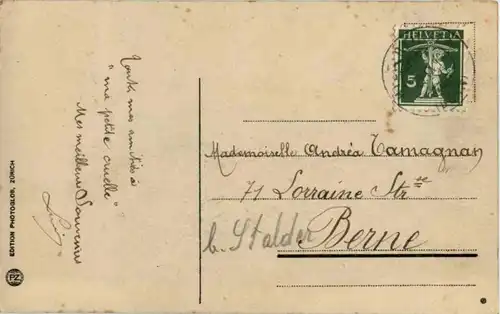 Toutes mes amitiés à
"ma petite cruelle"
Mes meilleurs Souvenirs
EDITION PHOTOGLOB, ZÜRICH
PZ
HELVETIA
5
Mademoiselle Andréa Tamagnan
71 Lorraine Str
b. Stalder Berne